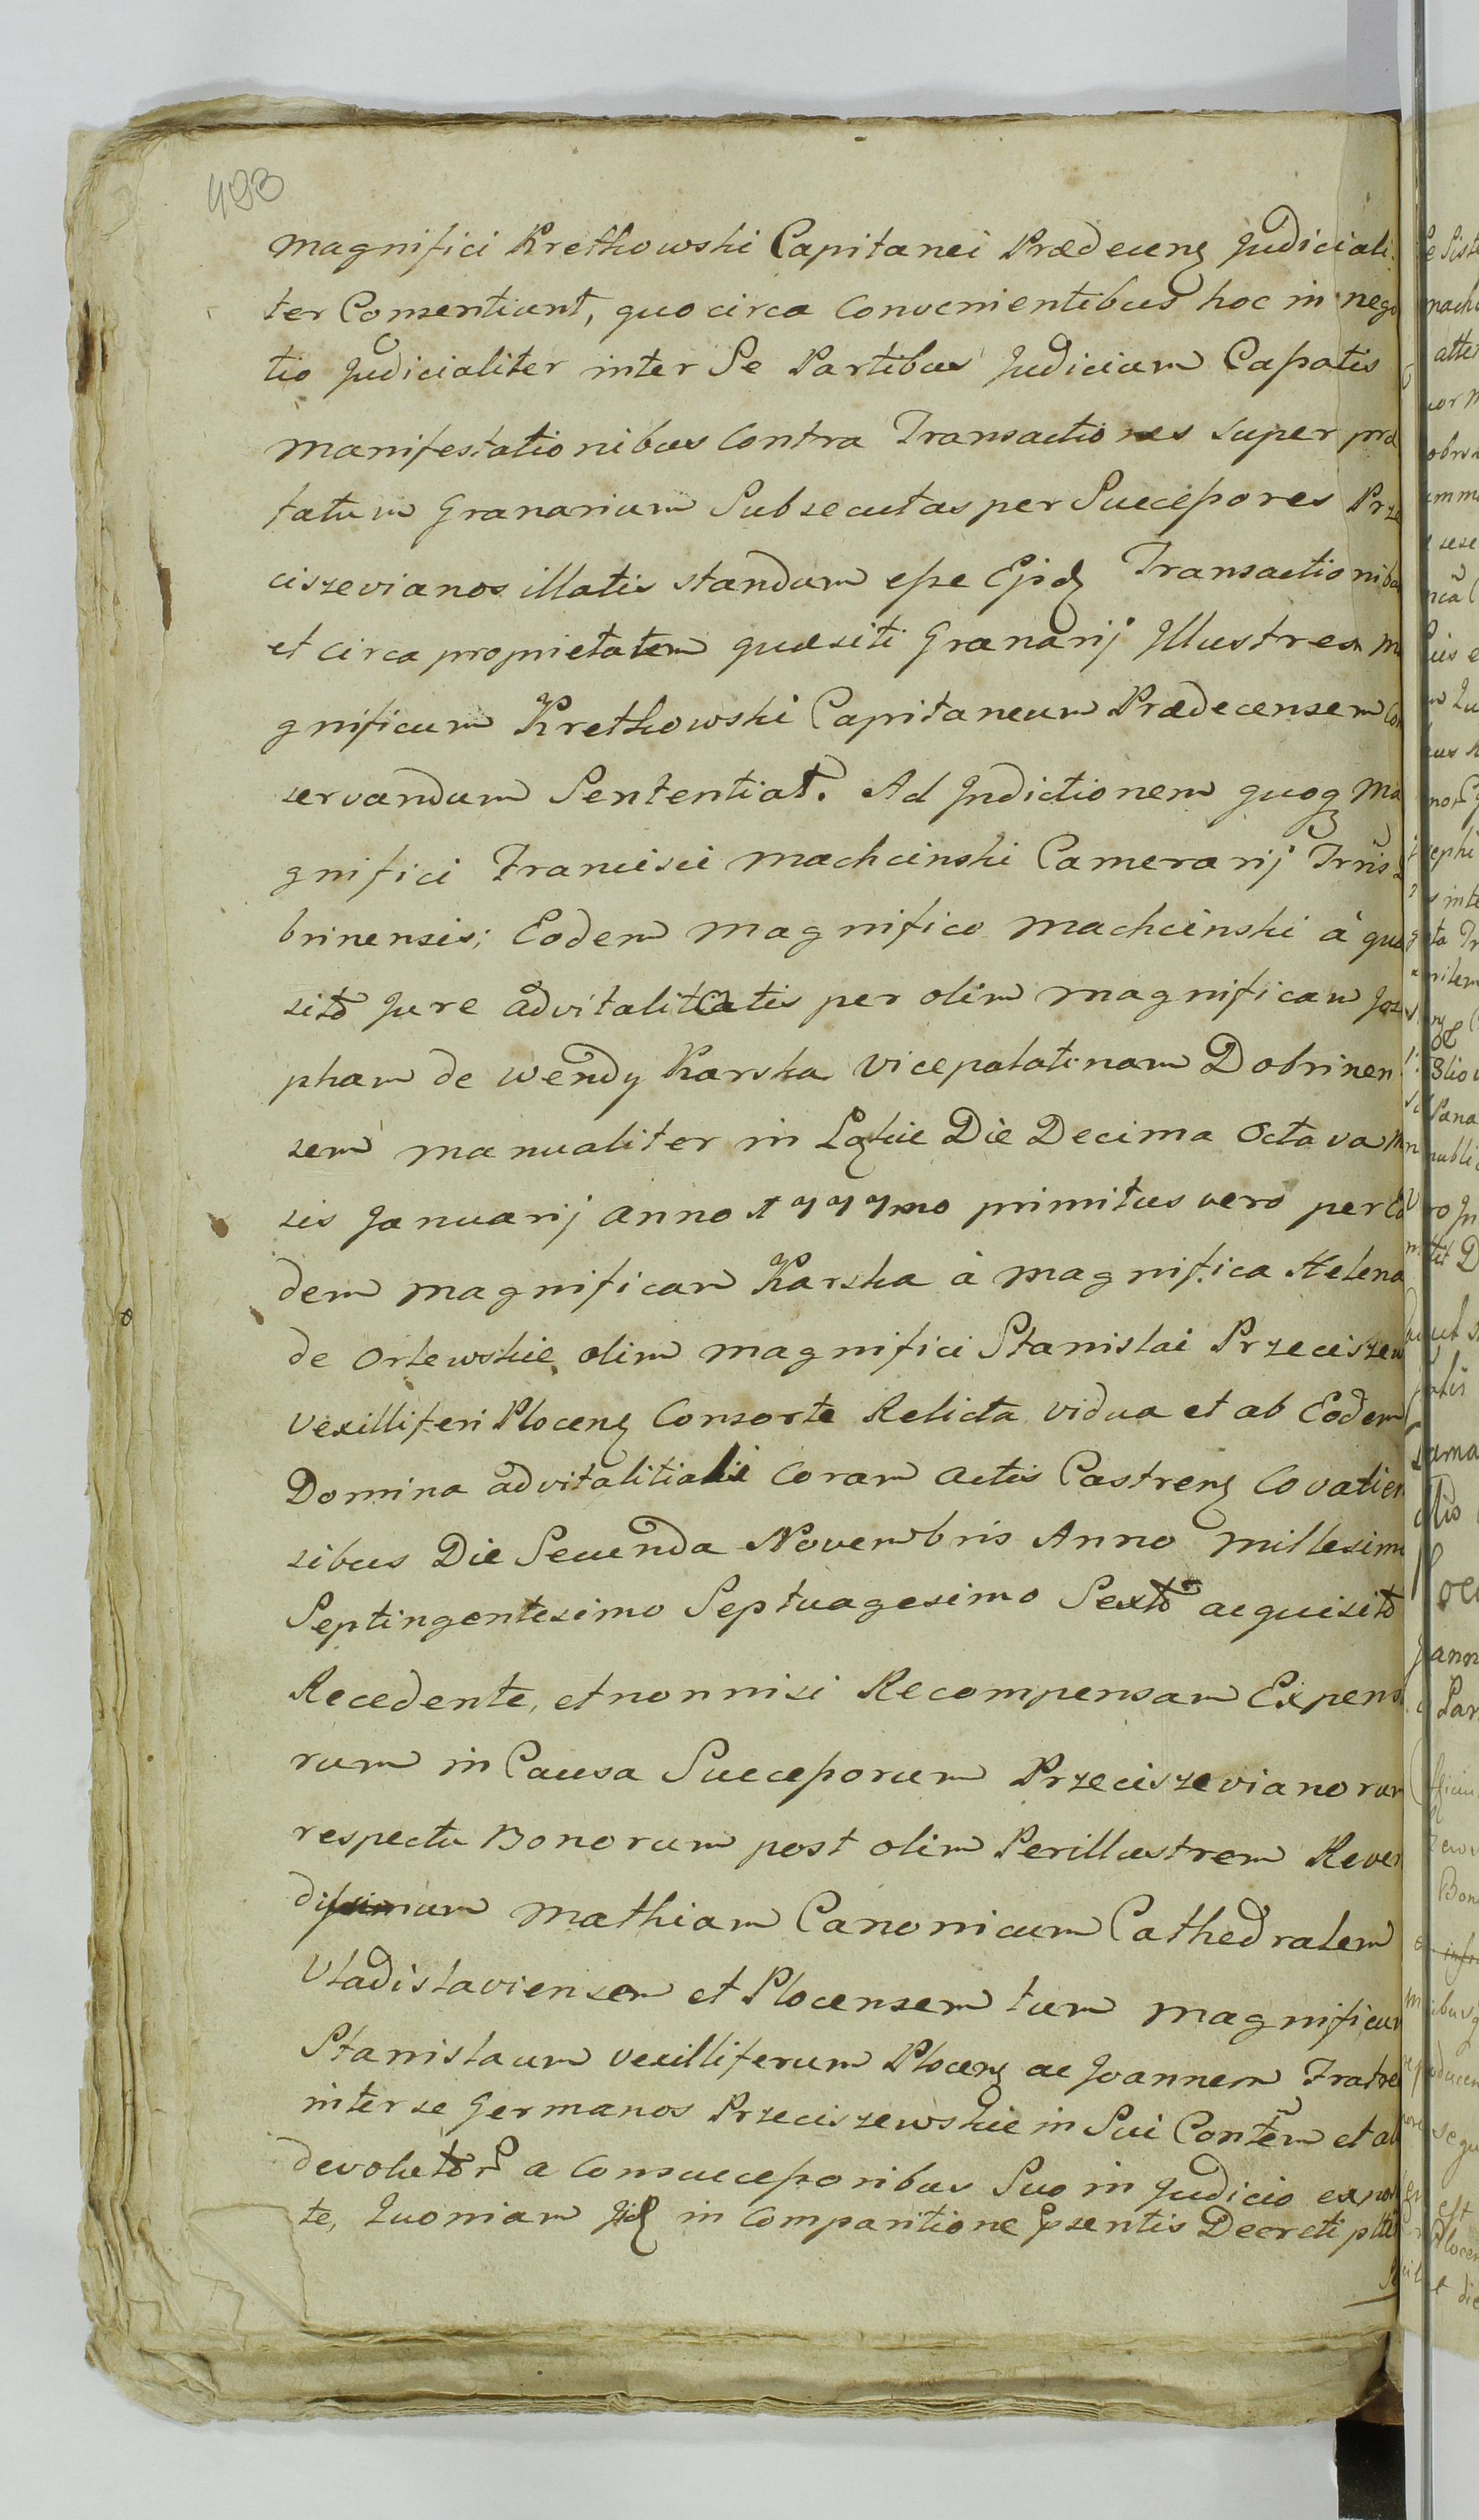 493
magnifici Krethowski Capitanei Prædecenȝ Judiciali
ter Consentiunt, quocirca Convenientibus hoc in nego
tio Judicialiter inter Se Partibus Judicium Cassatis
manifestationibus Contra Transactiones super præ
tatum Granarium Subsecutas per Successores Prze
ciszevianos illatis standum esse Ejsdȝ Transactioniba
et circa proprietatem quæsiti Granarij Illustrem Ma
gnificum Krethowski Capitaneum Prædecensem Con
servandum Sententiat. Ad Indictionem quoqȝ Ma
gnifici Francisci Machcinski Camerarij Trris
brinensis; Eodem Magnifico Machcinski à quæ
sito Jure advitalitatis per olim Magnificam Jose
pham de Wendy Karska Vicepalatinam Dobrinen
sem manualiter in Lgkie Die Decima Octava Men
sis Januarij Anno 1777mo primitus vero per Ea
dem Magnificam Karska à Magnifica Helena
de Orlewskie olim Magnifici Stanislai Przeciszew
Vexilliferi Plocenȝ Consorte Relicta vidua et ab Eodem
Domina advitalitiali Coram Actis Castrenȝ Covalien
sibus Die Secunda Novembris Anno Millesimo
Septingentesimo Septuagesimo Sexto acquisito
Recedente, et nonnisi Recompensam Expenso
rum in Causa Successorum Przeciszevianorum
respectu Bonorum post olim Perillustrem Reveren
dissimum Mathiam Canonicum Cathedralem
Vladislaviensem et Plocensem tum Magnificum
Stanislaum Vexilliferum Plocenȝ ac Joannem Fratre
inter se Germanos Przeciszewskie in Sui Contem et al
devolutor a Consuccessoribus Suo in Judicio expor
te, Quoniam in Comparitione psentis Decreti